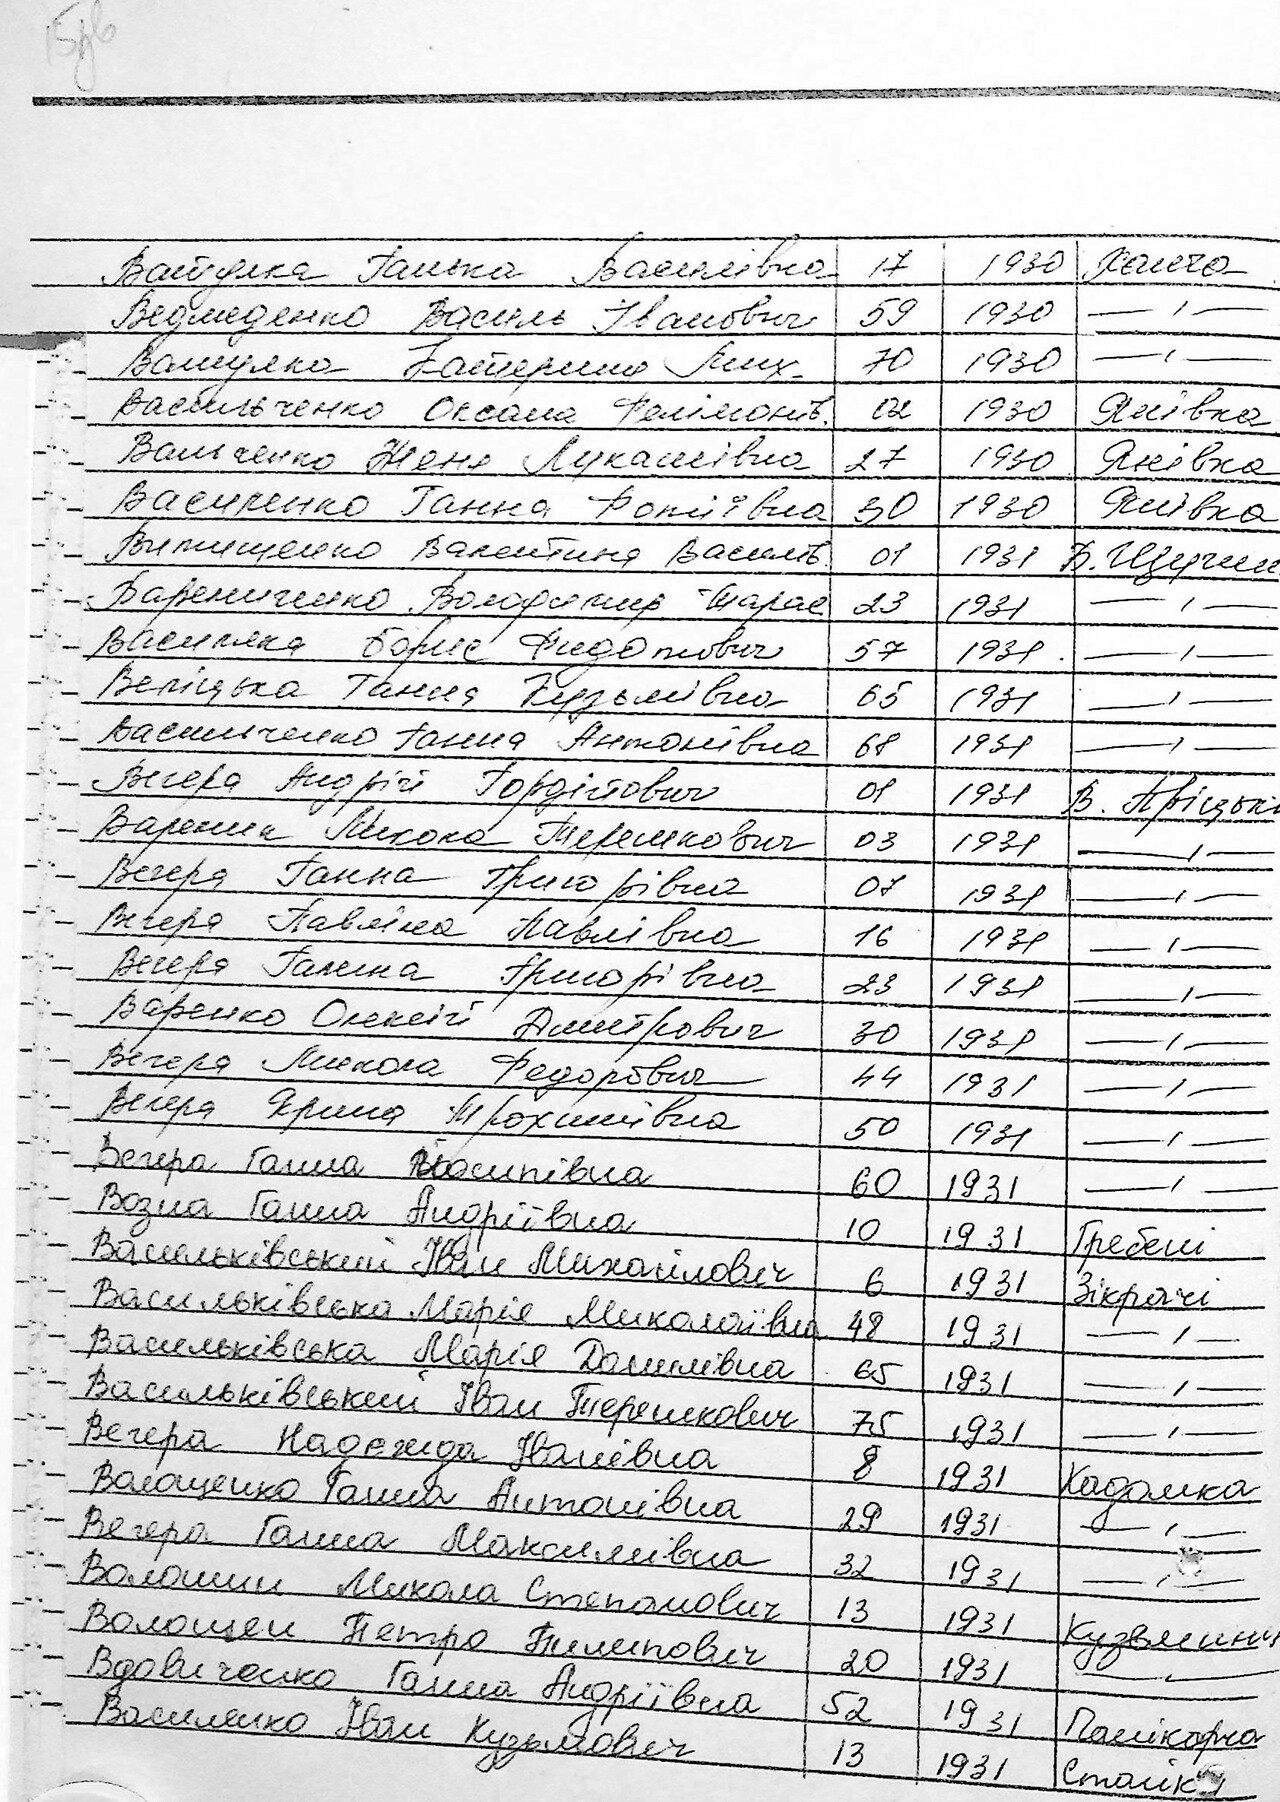 Ганька Василівна 17 1930 Халча
Ведмеденко Василь Іванович 59 1930 —"—
Катерина Мих. 70 1930 —"—
Васильченко Оксана Филімонів. 02 1930 Янівка
Женя Лукашівна 27 1930 Янівка
Василенко Ганна Фотіївна 30 1930 Янівка
Валентина Василів. 01 1931 В. Щучин
Володимир Тарас 23 1931 —"—
Борис Федотович 57 1931 —"—
Веліцька Ганна Кузьмівна 65 1931 —"—
Ганна Антонівна 68 1931 —"—
Вегера Андрій Гордійович 01 1931 В. Пріцьки
Вареник Микола Терешкович 03 1931 —"—
Вегера Ганна Григорівна 07 1931 —"—
Вегера Павліна Павлівна 16 1931 —"—
Вегера Галина Григорівна 23 1931 —"—
Варенко Олексій Дмитрович 30 1931 —"—
Вегера Микола Федорович 44 1931 —"—
Вегера Ярина Трохимівна 50 1931 —"—
Вегера Ганна Йосипівна 60 1931 —"—
Возна Ганна Андріївна 10 1931 Гребені
Васильківський Іван Михайлович 6 1931 Зікрачі
Васильківська Марія Миколаївна 48 1931 —"—
Васильківська Марія Данилівна 65 1931 —"—
Васильківський Іван Терешкович 75 1931 —"—
Вегера Надежда Іванівна 8 1931 Кадомка
Волощенко Ганна Антонівна 29 1931 —"—
Вегера Ганна Максимівна 32 1931 —"—
Волошин Микола Степанович 13 1931 Кузьминц
Волощен Петро Пилипович 20 1931 —"—
Вдовиченко Ганна Андріївна 52 1931 Панікарча
Василенко Іван Кузьмович 13 1931 Стайки